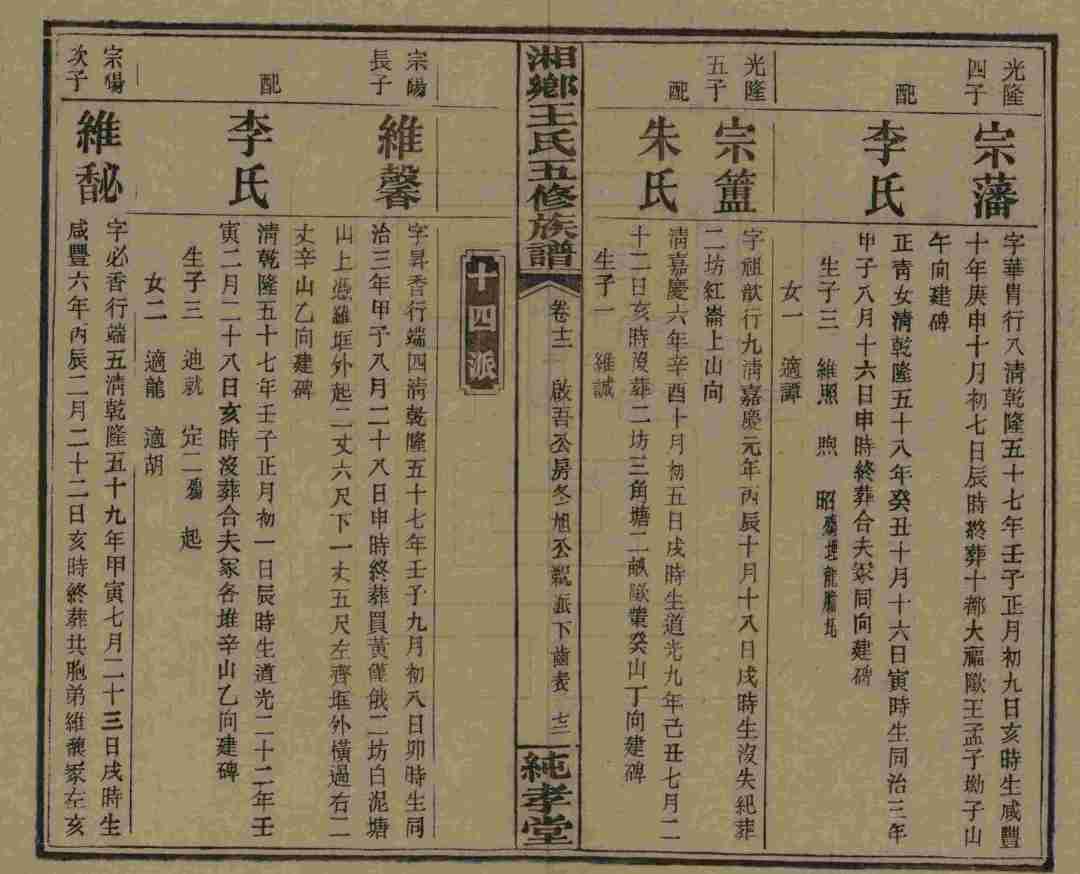 光隆
四子
宗藩
字華胄行八清乾隆五十七年壬子正月初九日亥時生咸豐
十年庚申十月初七日辰時終葬十都大福歐王孟子坳子山
午向建碑
配
李氏
正青女清乾隆五十八年癸丑十月十六日寅時生同治三年
甲子八月十六日申時終葬合夫冢同向建碑
生子三 維照 煦 昭殤埋龍膽坑
女一 適譚
光隆
五子
宗簠
字祖猷行九清嘉慶元年丙辰十月十八日戌時生沒失紀葬
二坊紅崙上山向
配
朱氏
清嘉慶六年辛酉十月初五日戌時生道光九年己丑七月二
十二日亥時沒葬二坊三角塘二畝歐 癸山丁向建碑
生子一 維誠
湘鄉王氏五修族譜
卷十二 啟吾公房冬旭公親派下齒表 七二
純孝堂
十四派
宗陽
長子
維馨
字昇香行端四清乾隆五十七年壬子九月初八日卯時生同
治三年甲子八月二十八日申時終葬買黃僅俄二坊白泥塘
山上憑羅堆外起二丈六尺下一丈五尺左齊堆外橫過右二
丈辛山乙向建碑
配
李氏
清乾隆五十七年壬子正月初一日辰時生道光二十二年壬
寅二月二十八日亥時沒葬合夫冢各堆辛山乙向建碑
生子三 迪就 定二殤 起
女二 適龍 適胡
宗陽
次子
維馝
字必香行端五清乾隆五十九年甲寅七月二十三日戌時生
咸豐六年丙辰二月二十二日亥時終葬共胞弟維馥冢左亥